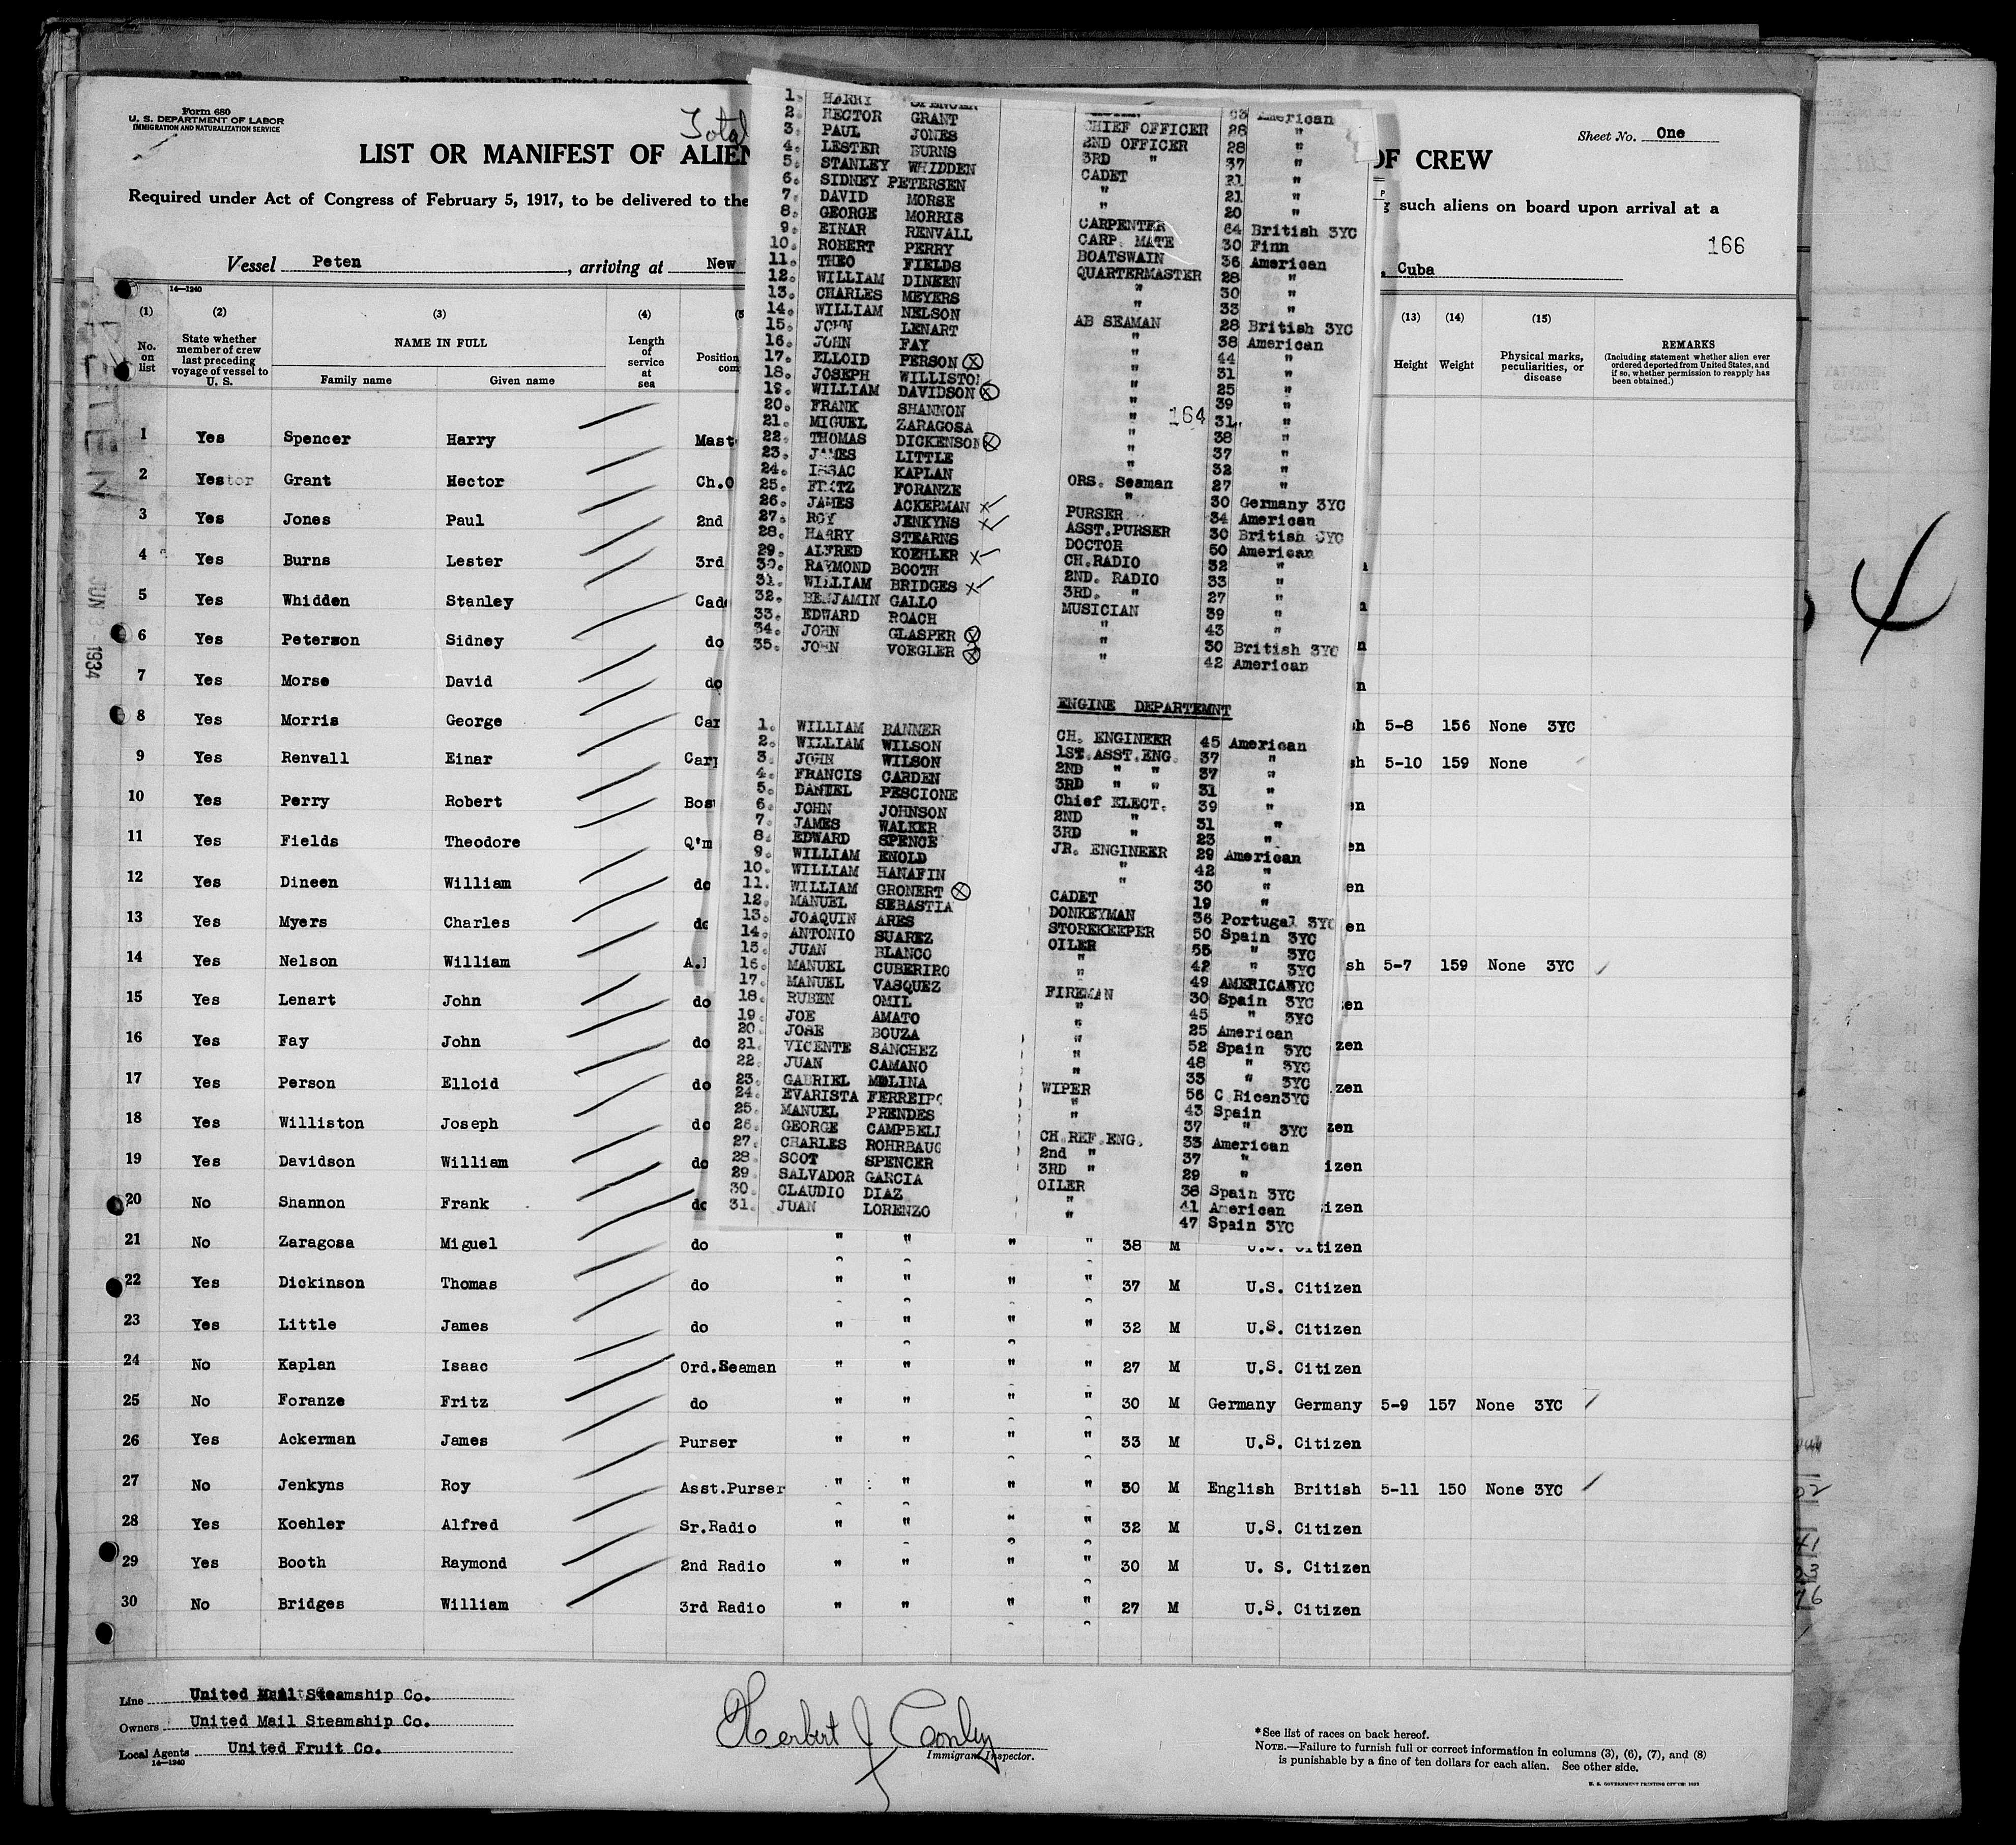 Form 680
U. S. DEPARTMENT OF LABOR
IMMIGRATION AND NATURALIZATION SERVICE
Total
Sheet No. One
LIST OR MANIFEST OF ALIEN OF CREW
Required under Act of Congress of February 5, 1917, to be delivered to the such aliens on board upon arrival at a
166
Vessel Peten , arriving at New , Cuba
14-1240
(1) (2) (3) (4) (13) (14) (15)
No. on list
State whether member of crew last preceding voyage of vessel to U. S.
NAME IN FULL
Family name Given name
Length of service at sea
Position
Height Weight
Physical marks, peculiarities, or disease
REMARKS
(Including statement whether alien ever ordered deported from United States, and if so, whether permission to reapply has been obtained.)
1 Yes Spencer Harry Mast
2 Yestor Grant Hector Ch.O
3 Yes Jones Paul 2nd
4 Yes Burns Lester 3rd
5 Yes Whidden Stanley Cad
6 Yes Peterson Sidney do
7 Yes Morse David do
8 Yes Morris George Car sh 5-8 156 None 3YC
9 Yes Renvall Einar Carp sh 5-10 159 None
10 Yes Perry Robert Bos en
11 Yes Fields Theodore Q'm en
12 Yes Dineen William do en
13 Yes Myers Charles do en
14 Yes Nelson William A. sh 5-7 159 None 3YC
15 Yes Lenart John do en
16 Yes Fay John do zen
17 Yes Person Elloid do izen
18 Yes Williston Joseph do zen
19 Yes Davidson William do izen
20 No Shannon Frank do izen
21 No Zaragosa Miguel do " " " " 38 M U.S. Citizen
22 Yes Dickinson Thomas do " " " " 37 M U.S. Citizen
23 Yes Little James do " " " " 32 M U.S. Citizen
24 No Kaplan Isaac Ord.Seaman " " " " 27 M U.S. Citizen
25 No Foranze Fritz do " " " " 30 M Germany Germany 5-9 157 None 3YC
26 Yes Ackerman James Purser " " " " 33 M U.S. Citizen
27 No Jenkyns Roy Asst.Purser " " " " 30 M English British 5-11 150 None 3YC
28 Yes Koehler Alfred Sr.Radio " " " " 32 M U.S. Citizen
29 Yes Booth Raymond 2nd Radio " " " " 30 M U. S. Citizen
30 No Bridges William 3rd Radio " " " " 27 M U.S. Citizen
1. HARRY SPENCER American
2. HECTOR GRANT CHIEF OFFICER 28 "
3. PAUL JONES 2ND OFFICER 28 "
4. LESTER BURNS 3RD " 37 "
5. STANLEY WHIDDEN CADET 21 "
6. SIDNEY PETERSEN " 21 "
7. DAVID MORSE " 20 "
8. GEORGE MORRIS CARPENTER 64 British 3YC
9. EINAR RENVALL CARP. MATE 30 Finn
10. ROBERT PERRY BOATSWAIN 36 American
11. THEO FIELDS QUARTERMASTER 28 "
12. WILLIAM DINEEN " 30 "
13. CHARLES MEYERS " 33 "
14. WILLIAM NELSON AB SEAMAN 28 British 3YC
15. JOHN LENART " 38 American
16. JOHN FAY " 44 "
17. ELLOID PERSON " 31 "
18. JOSEPH WILLISTON " 25 "
19. WILLIAM DAVIDSON " 39 "
20. FRANK SHANNON " 164 31 "
21. MIGUEL ZARAGOSA " 38 "
22. THOMAS DICKENSON " 37 "
23. JAMES LITTLE " 32 "
24. ISSAC KAPLAN ORS. Seaman 27 "
25. FRITZ FORANZE " 30 Germany 3YC
26. JAMES ACKERMAN PURSER 34 American
27. ROY JENKYNS ASST.PURSER 30 British 3YC
28. HARRY STEARNS DOCTOR 50 American
29. ALFRED KOEHLER CH.RADIO 32 "
30. RAYMOND BOOTH 2ND. RADIO 33 "
31. WILLIAM BRIDGES 3RD. " 27 "
32. BENJAMIN GALLO MUSICIAN 39 "
33. EDWARD ROACH " 43 "
34. JOHN GLASPER " 30 British 3YC
35. JOHN VOEGLER " 42 American
ENGINE DEPARTEMNT
1. WILLIAM BANNER CH. ENGINEER 45 American
2. WILLIAM WILSON 1ST.ASST.ENG. 37 "
3. JOHN WILSON 2ND " " 37 "
4. FRANCIS CARDEN 3RD " " 31 "
5. DANIEL PESCIONE Chief ELECT. 39 "
6. JOHN JOHNSON 2ND " 31 "
7. JAMES WALKER 3RD " 23 "
8. EDWARD SPENCE JR. ENGINEER 29 American
9. WILLIAM ENOLD " 42 "
10. WILLIAM HANAFIN " 30 "
11. WILLIAM GRONERT CADET 19 "
12. MANUEL SEBASTIA DONKEYMAN 36 Portugal 3YC
13. JOAQUIN ARES STOREKEEPER 50 Spain 3YC
14. ANTONIO SUAREZ OILER 55 " 3YC
15. JUAN BLANCO " 42 " 3YC
16. MANUEL CUBERIRO " 49 AMERICAN 3YC
17. MANUEL VASQUEZ FIREMAN 30 Spain 3YC
18. RUBEN OMIL " 45 " 3YC
19. JOE AMATO " 25 American
20. JOSE BOUZA " 52 Spain 3YC
21. VICENTE SANCHEZ " 48 " 3YC
22. JUAN CAMANO " 33 " 3YC
23. GABRIEL MOLINA WIPER 56 C Rican 3YC
24. EVARISTA FERREIRO " 43 Spain
25. MANUEL PRENDES " 37 " 3YC
26. GEORGE CAMPBELL CH.REF.ENG. 33 American
27. CHARLES ROHRBAUG 2nd " 37 "
28. SCOT SPENCER 3RD " 29 "
29. SALVADOR GARCIA OILER 38 Spain 3YC
30. CLAUDIO DIAZ " 41 American
31. JUAN LORENZO " 47 Spain 3YC
JUN 3 - 1934
4
Line United Mail Steamship Co.
Owners United Mail Steamship Co.
Local Agents United Fruit Co.
14-1240
Herbert J Conley
Immigrant Inspector.
*See list of races on back hereof.
NOTE.—Failure to furnish full or correct information in columns (3), (6), (7), and (8)
is punishable by a fine of ten dollars for each alien. See other side.
U. S. GOVERNMENT PRINTING OFFICE: 1932